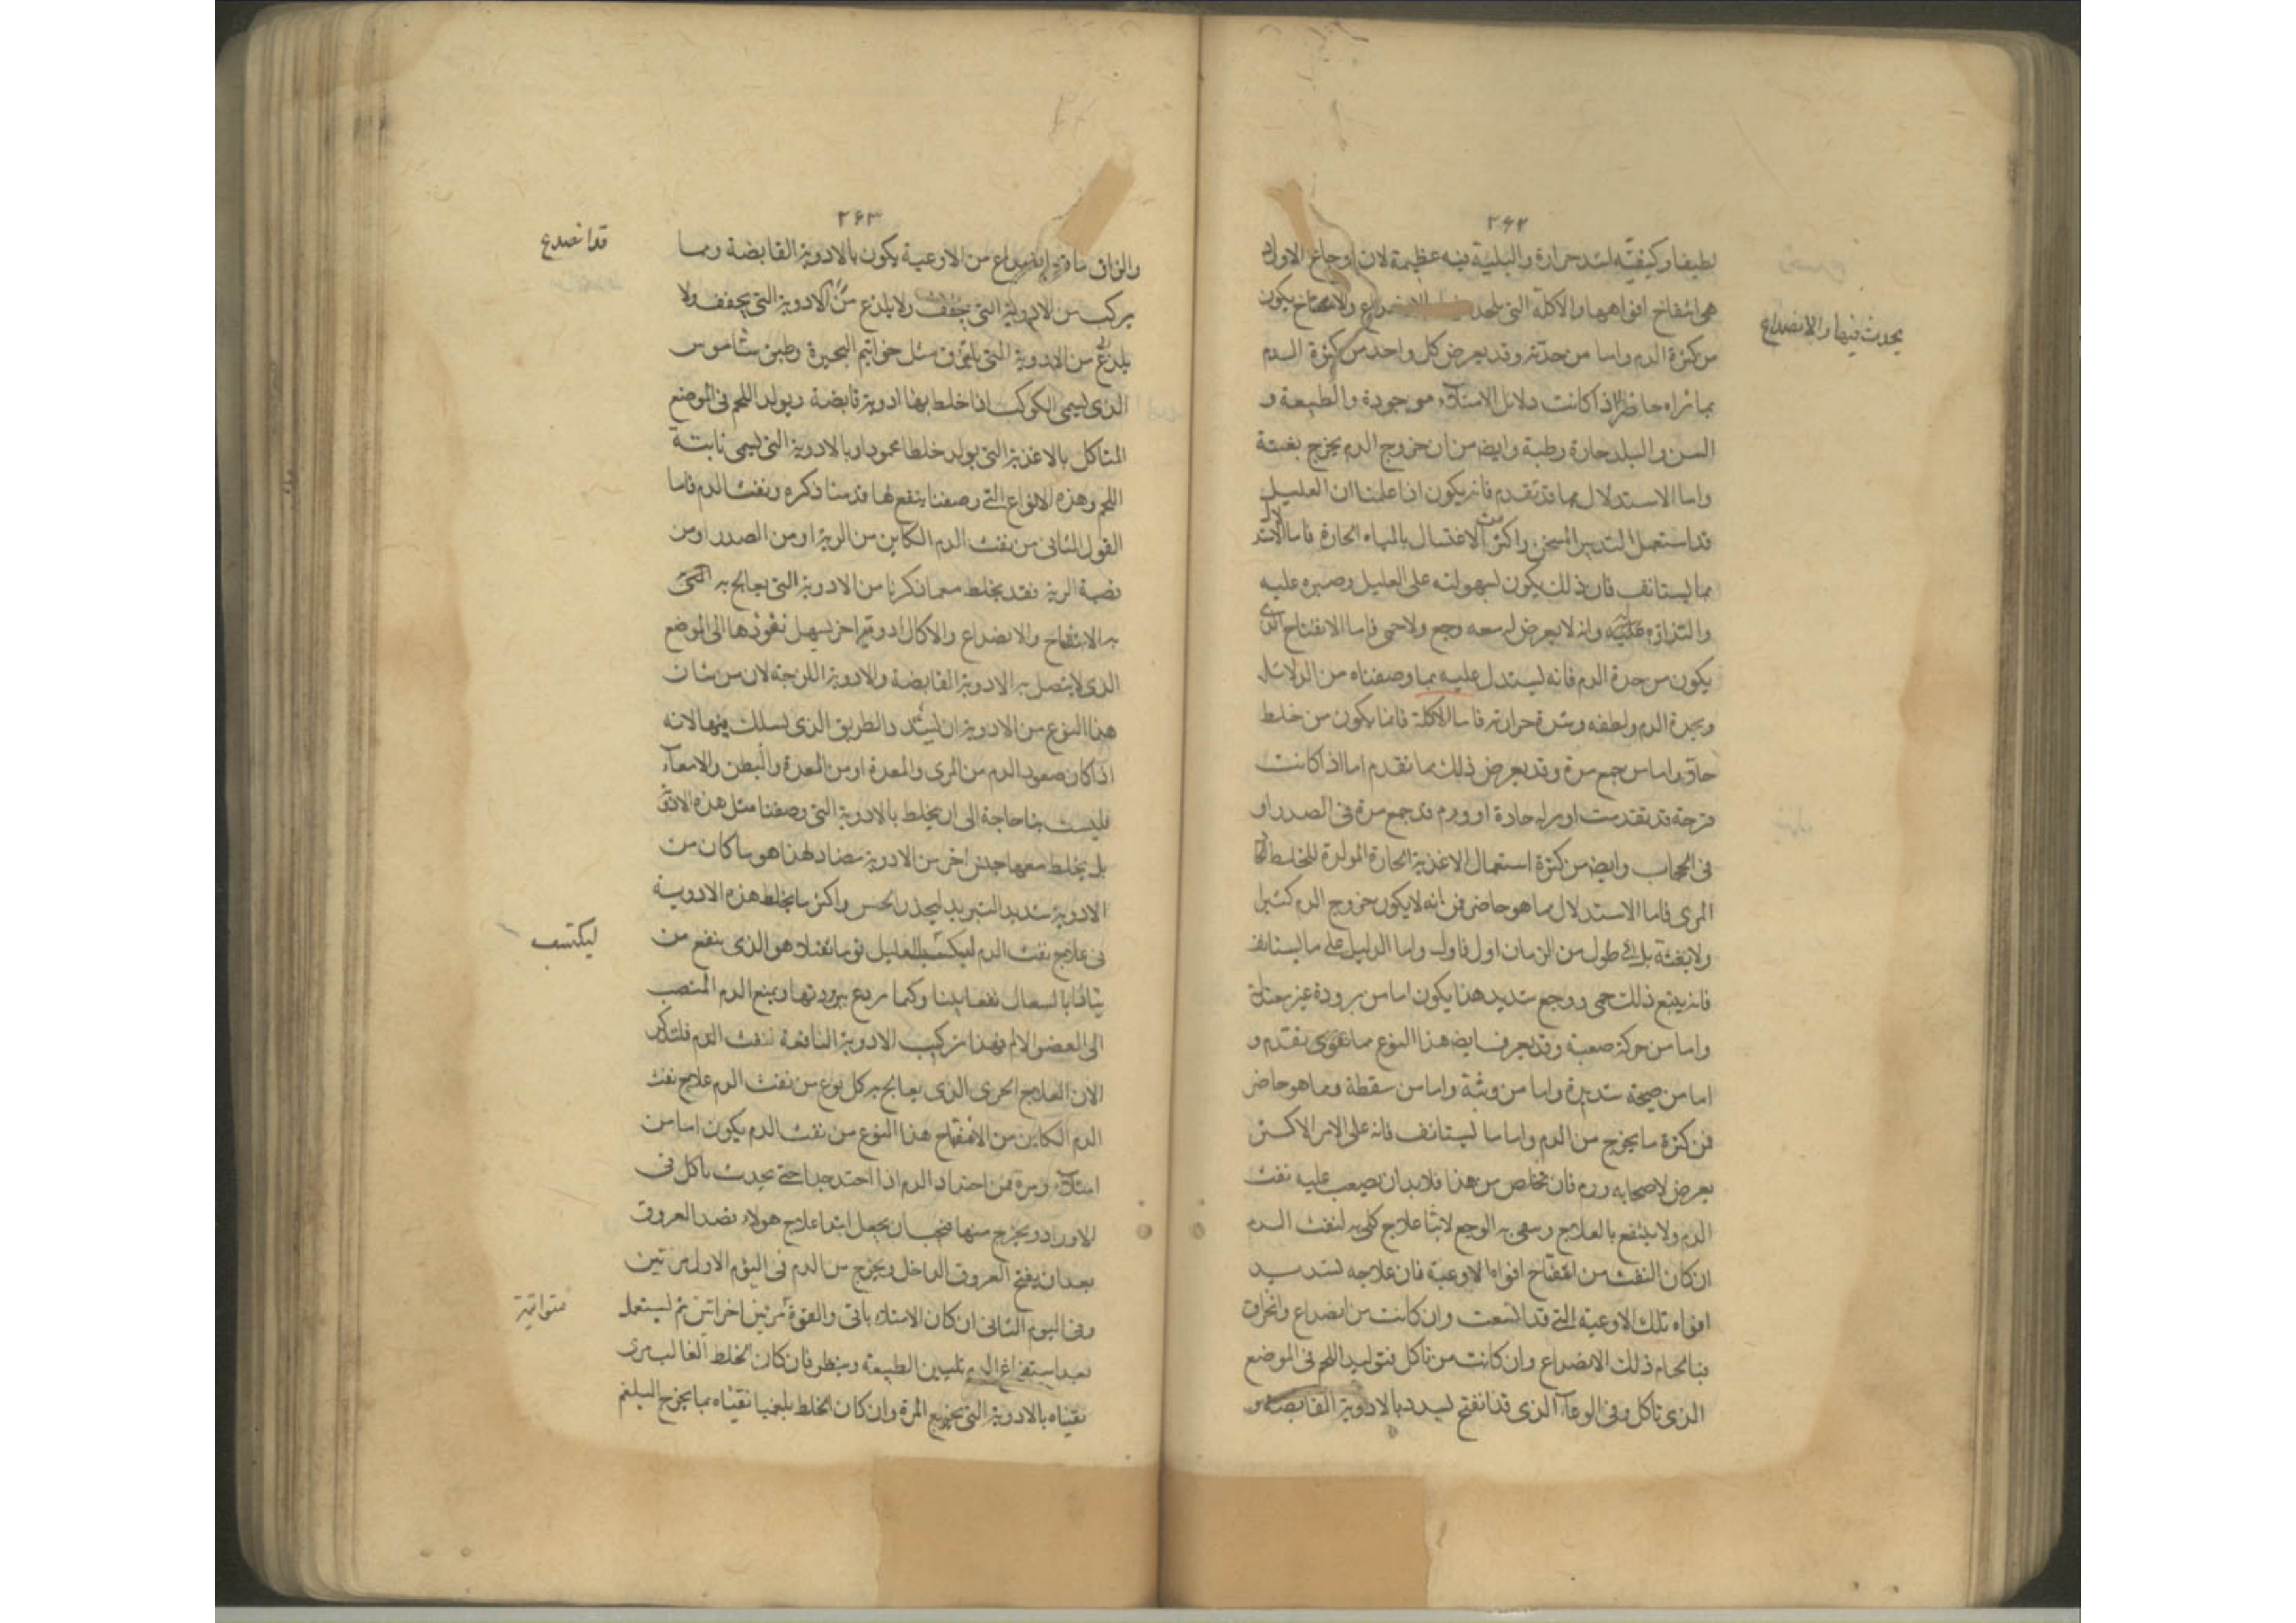 ٢٦٢
لطيفا وكيفيته لشد حرارة والبلية فيه عظيمة لان اوجاع الاوراد
هى انتفاخ افواهها والاكلة التى تحدث الانصداع والانتفاخ يكون
يحدث فيها والانصداع
من كثرة الدم واما من حدته وقد يعرض كل واحد من كثرة الدم
بما نراه حاضرا اذا كانت دلايل الامتلاء موجودة والطبيعة و
السن والبلد حارة رطبة وايضا من ان خروج الدم يخرج بغتة
واما الاستدلال مما قد تقدم فانه يكون اذا علمنا ان العليل
قد استعمل التدبير المسخن واكثر من الاغتسال بالمياه الحارة فاما الاستدلال
مما يستانف فان ذلك يكون لسهولته على العليل وصبره عليه
والتذاذه عليه وانه لا يعرض له معه وجع ولا حمى فاما الانفتاح الذى
يكون من حدة الدم فانه يستدل عليه بما وصفناه من الدلائل
وبحدة الدم ولطفه وشدة حرارته فاما الاكلة فانما يكون من خلط
حاد واما من جمع مدة وقد يعرض ذلك بما تقدم اما اذا كانت
قرحة قد تقدمت او مدة حادة او ورم قد جمع مدة فى الصدر او
فى الحجاب وايضا من كثرة استعمال الاغذية الحارة المولدة للخلط
المرى فاما الاستدلال مما هو حاضر فمن انه لا يكون خروج الدم كثيرا
ولا بغتة بل فى طول من الزمان اول فاول واما الدليل على ما يستانف
فانه يتبع ذلك حمى ووجع شديد هذا يكون اما من برودة غير معتادة
واما من حركة صعبة وقد يعرف ايضا هذا النوع مما تقدم و
اما من صيحة شديدة واما من وثبة واما من سقطة ومما هو حاضر
فمن كثرة ما يخرج من الدم واما ما يستانف فانه على الامر الاكثر
يعرض لاصحابه ورم فان تخلص من هذا فلا بد ان يصعب عليه نفث
الدم ولا ينتفع بالعلاج وسمى به الوجع لابثا علاج كلى به لنفث الدم
ان كان النفث من انفتاح افواه الاوعية فان علاجه تسديد
افواه تلك الاوعية التى قد اتسعت وان كانت من انصداع وانخراق
فبالحام ذلك الانصداع وان كانت من تاكل فتوليد اللحم فى الموضع
الذى تاكل وفى الوعاء الذى قد انفتح يسدد بالادوية القابضة
٢٦٣
والزاق ما قد انصداع من الاوعية يكون بالادوية القابضة ومما
قد انصدع
يركب من الادوية التى تجفف ولا يلذع من الادوية التى يجفف ولا
يلذع من الادوية التى تلزق مثل خواتيم البحيرة وطين شاموس
الذى يسمى الكوكب اذا خلط بها ادوية قابضة ويولد اللحم فى الموضع
المتاكل بالاغذية التى يولد خلطا محمودا وبالادوية التى يسمى نابتة
اللحم وهذه الانواع التى وصفنا ينفع لما قدمنا ذكره ونفث الدم فاما
القول الثانى من نفث الدم الكاين من الرية او من الصدر او من
قصبة الرية فقد يخلط مع ما ذكرنا من الادوية التى يعالج به التى
به الانتفاخ والانصداع والاكال ادوية اخر يسهل نفوذها الى الموضع
الذى لا يتصل به الادوية القابضة والادوية اللزجة لان من شان
هذا النوع من الادوية ان يسدد الطريق الذى يسلك فيها لانه
اذا كان صعود الدم من المرى والمعدة او من المعدة والبطن والامعاء
فليست بنا حاجة الى ان يخلط بالادوية التى وصفنا مثل هذه الادوية
بل يخلط معها جنس اخر من الادوية مضاد لهذا هو ما كان من
الادوية شديد التبريد ليخدر الحس واكثر ما يخلط هذه الادوية
فى علاج نفث الدم ليكسب العليل نوما ثقيلا هو الذى ينفع من
ليكتسب
يتاذى بالسعال نفعا بينا وكيما يردع ببرودتها ويمنع الدم المنصب
الى العضو الالم فهذا تركيب الادوية النافعة لنفث الدم فلنذكر
الان العلاج الحرى الذى يعالج به كل نوع من نفث الدم علاج نفث
الدم الكاين من الانفتاح هذا النوع من نفث الدم يكون اما من
امتلاء ومرة من احتداد الدم اذا احتد جدا حتى يحدث تاكل فى
الاوراد ويخرج منها فيجب ان يجعل ابتدا علاج هولاء فصد العروق
بعد ان يفتح العروق الداخل ويخرج من الدم فى اليوم الاول مرتين
وفى اليوم الثانى ان كان الامتلاء باقى والقوة مرتين اخراتين ثم يستعمل
متواتية
بعد استفراغ الدم تليين الطبيعة وينظر فان كان الخلط الغالب مرى
نقيناه بالادوية التى يخرج المرة وان كان الخلط بلغميا نقيناه بما يخرج البلغم